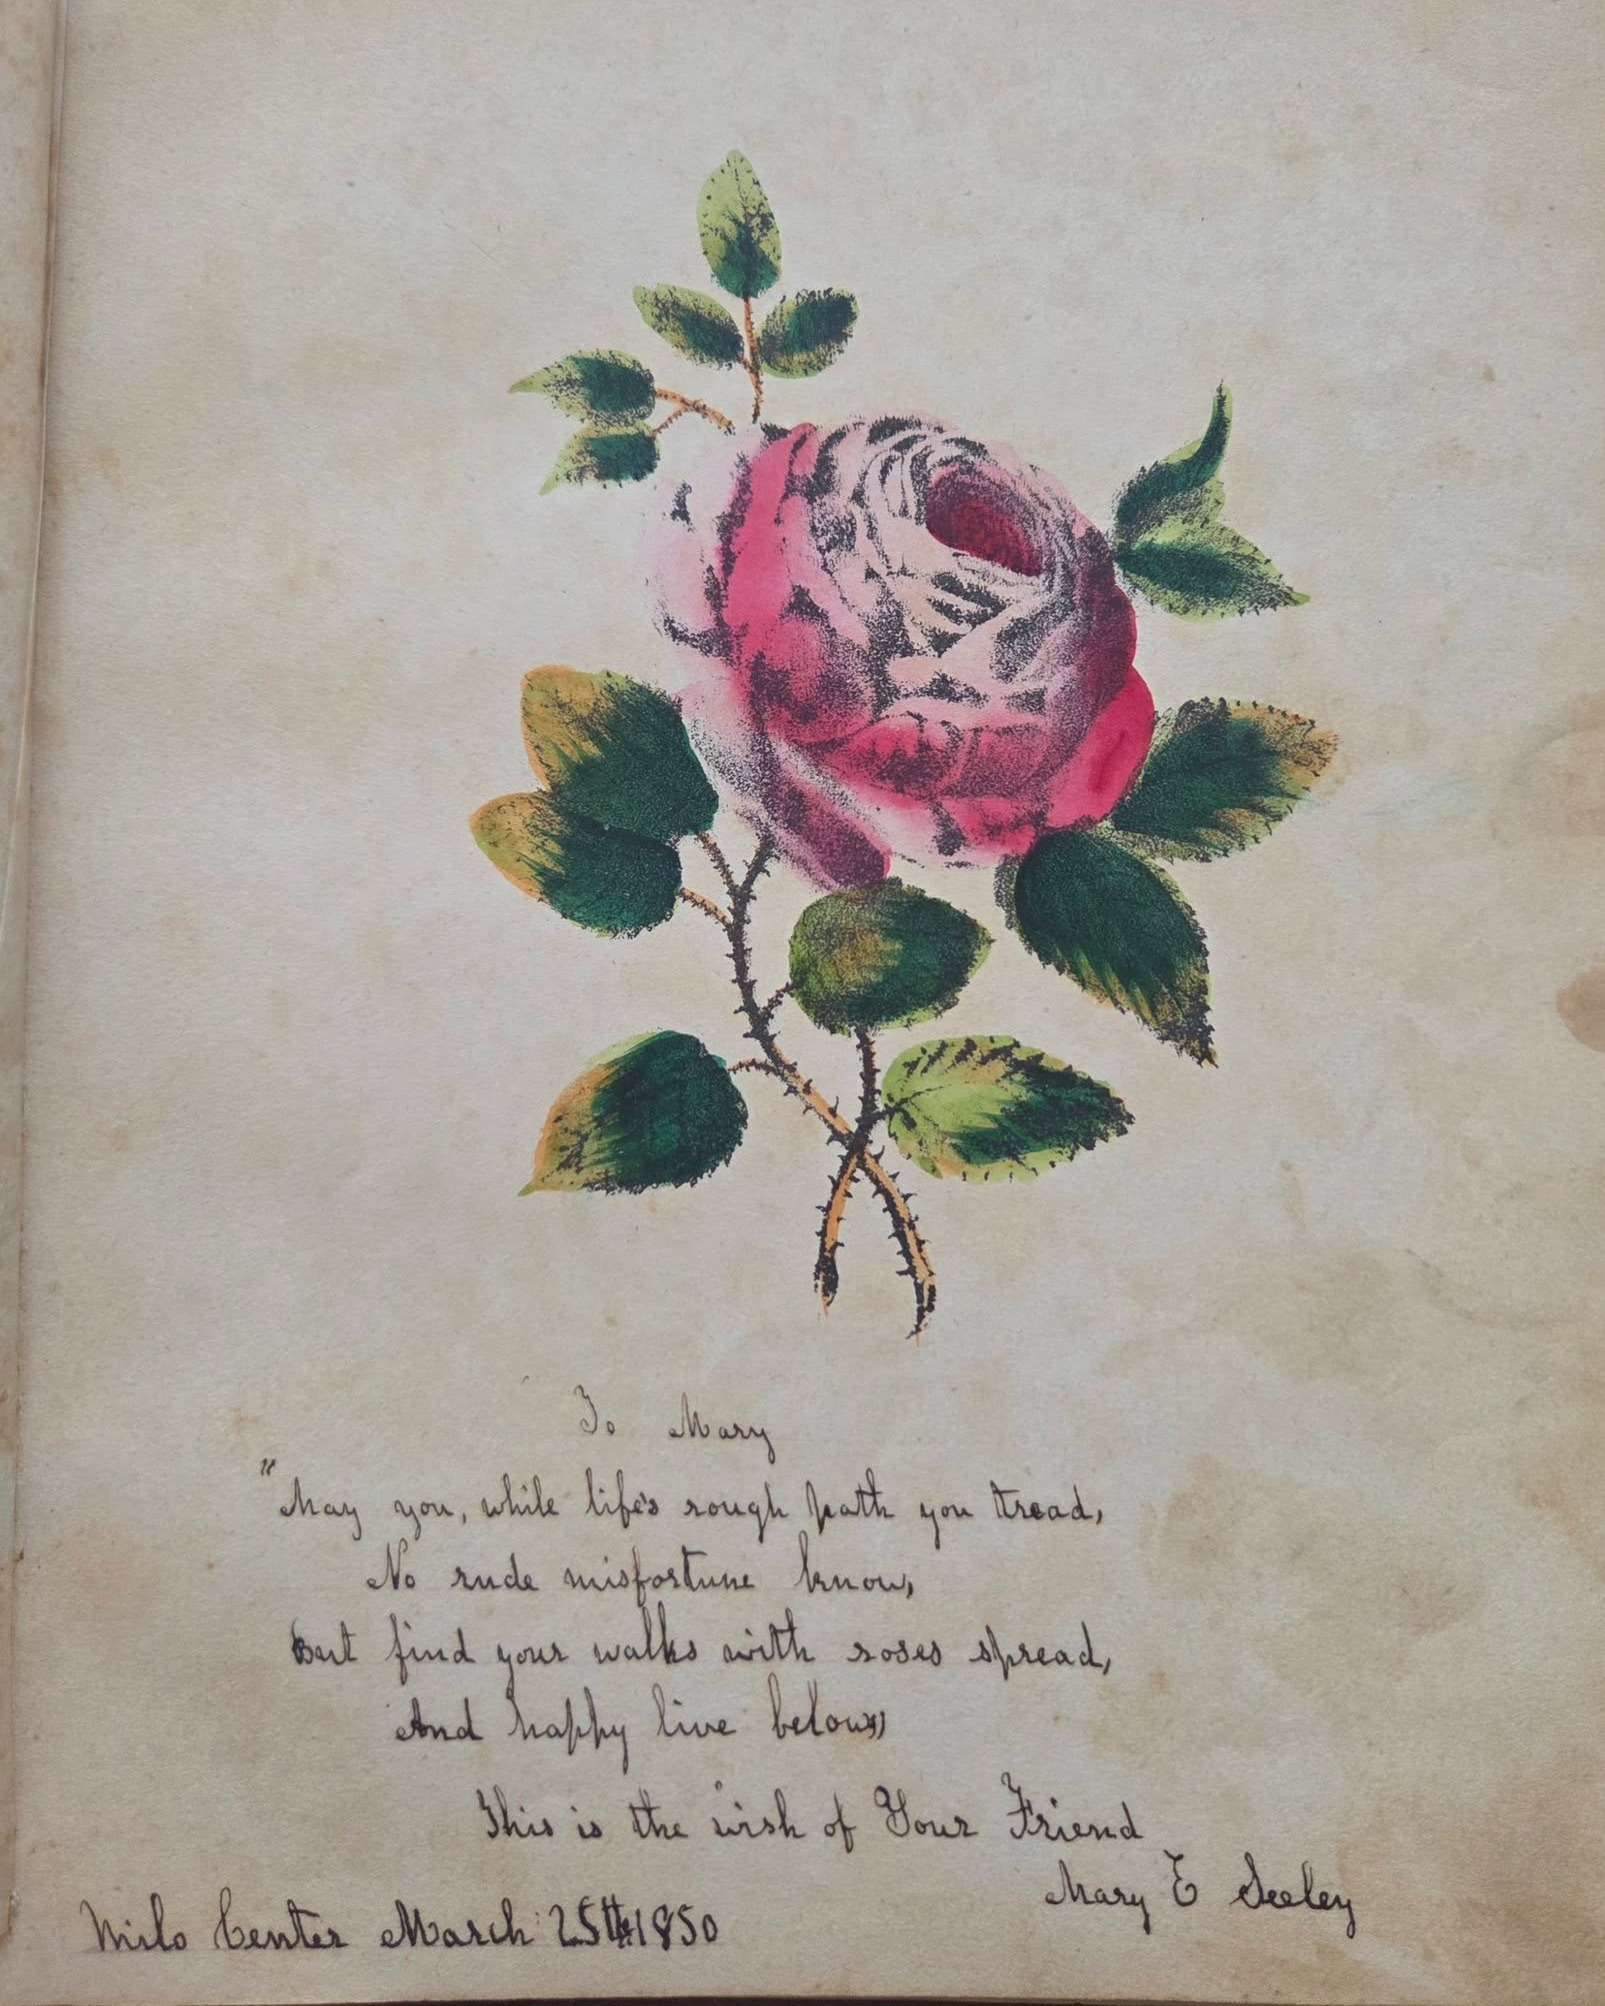 To Mary
"May you, while life's rough path you tread,
No rude misfortune know,
But find your walks with roses spread,
And happy live below"
This is the wish of Your Friend
Mary E Seeley
Milo Center March 25th 1850